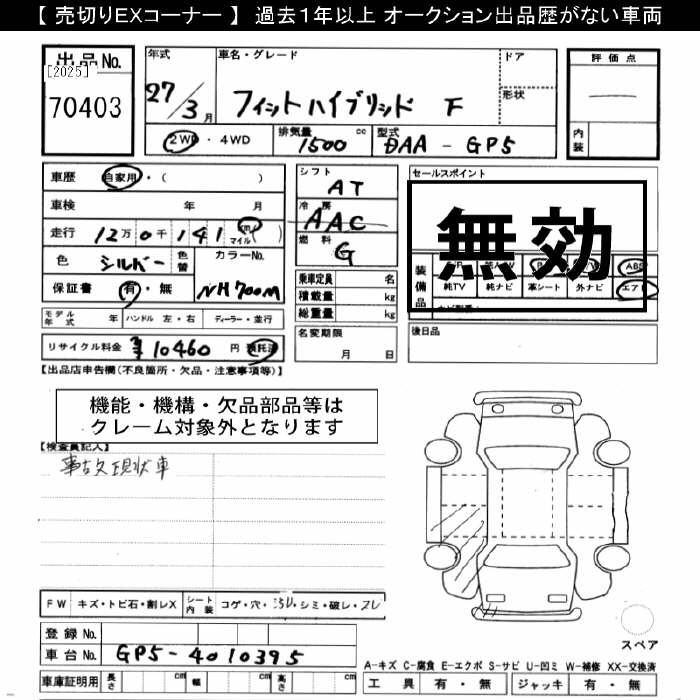 【 売切りEXコーナー 】 過去１年以上 オークション出品歴がない車両
出品No.
[2025]
70403
年式
27/3月
車名・グレード
フィットハイブリッド F
ドア
形状
評価点
内装
2WD・4WD
排気量
1500 cc
型式
DAA - GP5
車歴
自家用・( )
車検
年 月
走行
12万0千141 km マイル ( )
色
シルバー
色替
カラーNo.
NH700M
保証書
有・無
シフト
AT
冷房
AAC
燃料
G
乗車定員 名
積載量 kg
総重量 kg
セールスポイント
無効
装備品
純TV
純ナビ
革シート
外ナビ
エアB
ABS
モデル年式 年
ハンドル 左・右
ディーラー・並行
リサイクル料金
¥10460 円 預託済
名変期限
月 日
後日品
【出品店申告欄(不良箇所・欠品・注意事項等)】
機能・機構・欠品部品等は
クレーム対象外となります
【検査員記入】
事故欠現状車
FW
キズ・トビ石・割レX
シート内装
コゲ・穴・ヨゴレ・シミ・破レ・スレ
登録No.
車台No.
GP5-4010395
車庫証明用
長さ cm
幅 cm
高さ cm
スペア
A-キズ C-腐食 E-エクボ S-サビ U-凹ミ W-補修 XX-交換済
工具 有・無
ジャッキ 有・無